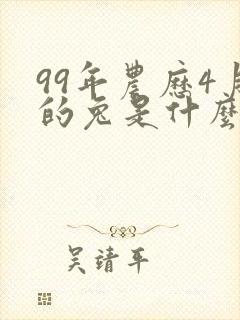 99年農曆4月
的兔是什麼
吴靖平